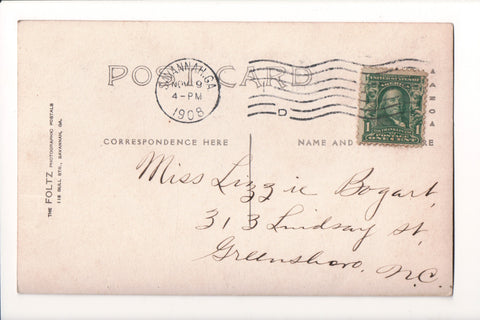 POST CARD
SAVANNAH, GA.
NOV 9
4-PM
1908
D
CORRESPONDENCE HERE
NAME AND HERE
THE FOLTZ PHOTOGRAPHIC POSTALS
118 BULL STR., SAVANNAH, GA.
Miss Lizzie Bogart,
313 Lindsay st,
Greensboro, N.C.